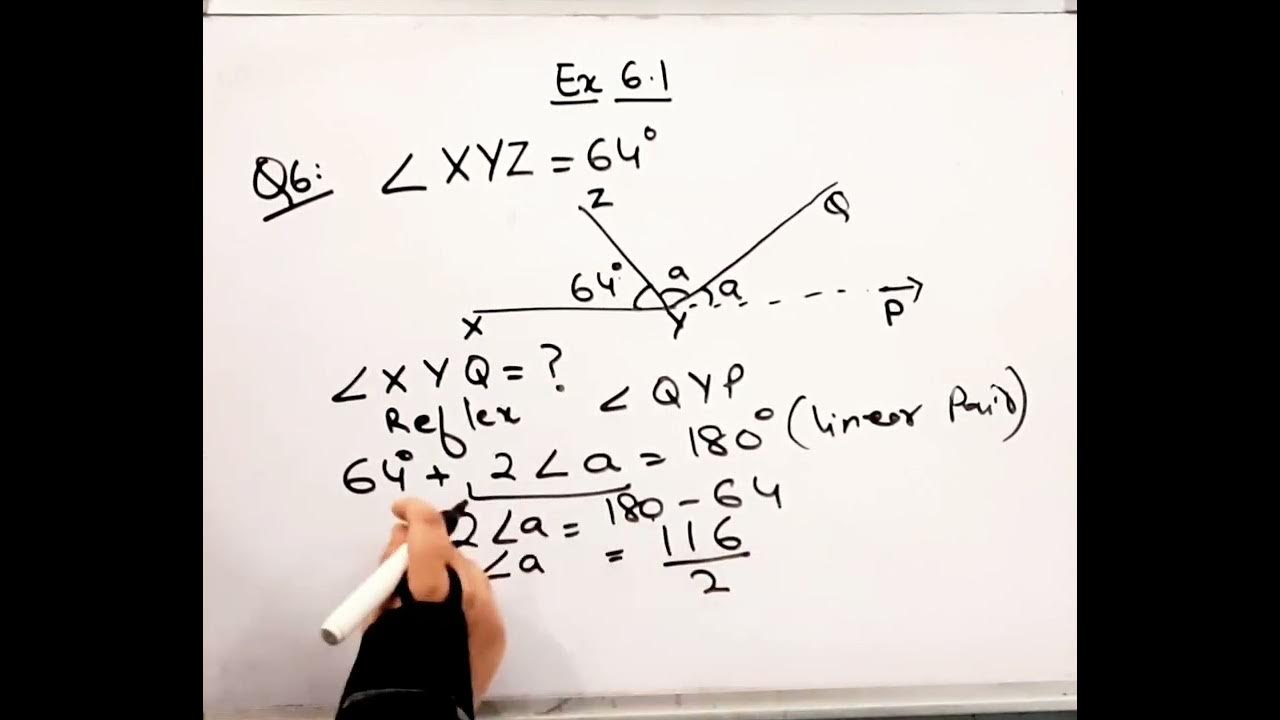 Ex 6.1
Q6: ∠XYZ = 64°
Z
Q
64° a a
X Y P
∠XYQ = ?
Reflex ∠QYP
64° + 2∠a = 180° (linear Pair)
2∠a = 180 - 64
∠a = 116
2